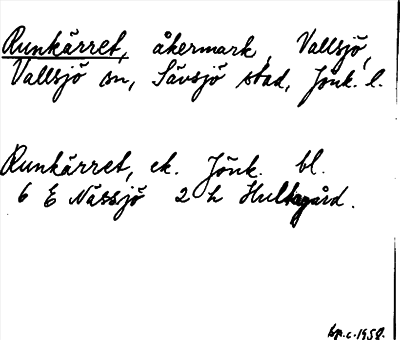 Runkärret, åkermark, Vallsjö,
Vallsjö sn, Sävsjö stad, Jönk. l.
Runkärret, ek. Jönk. bl.
6 E Nässjö 2 h Hultagård.
1958.